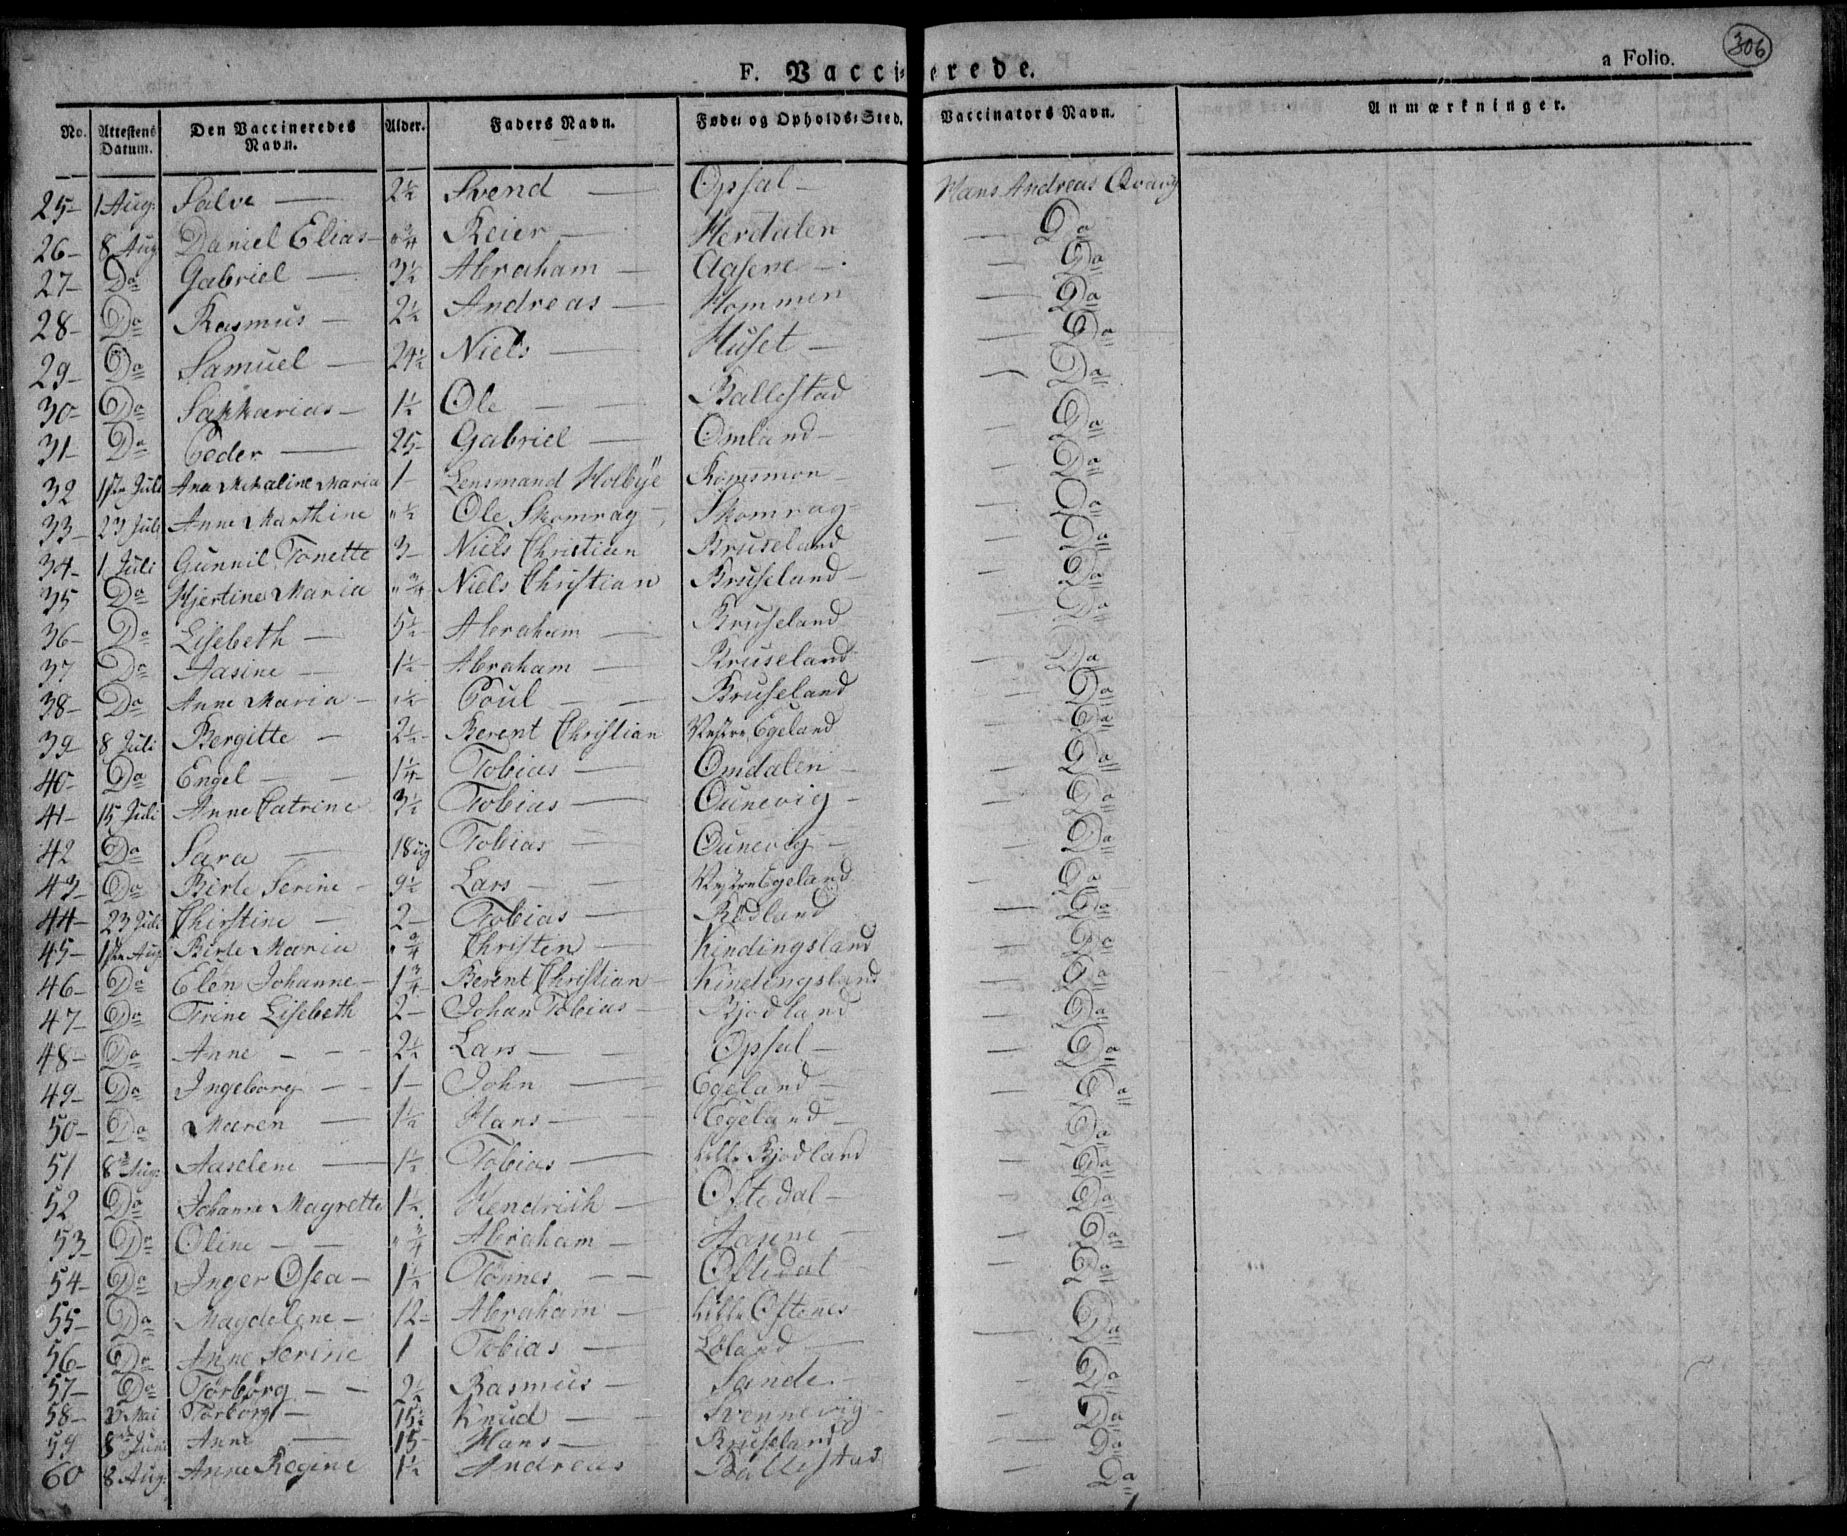 306
F. Vaccinerede. a Folio.
No. Attestens Datum. Den Vaccineredes Navn. Alder. Faders Navn. Føde- og Opholds-Sted. Vaccinators Navn. Anmærkninger.
25- 1 Aug. Salve — 2½ Svend — Opsal — Hans Andreas
26- 8 Aug Daniel Elias — "¾ Reier — Herdalen — Do
27- Do Gabriel — 3½ Abraham — Aasene — Do
28- Do Rasmus — 2½ Andreas — Hommen — Do
29- Do Samuel — 24½ Niels — Huset — Do
30- Do Sakkarias — 1½ Ole — Ballestad — Do
31- Do Peder — 25- Gabriel — Omland — Do
32 1ste Juli Ana Mikaline Maria 1- Lensmand Holbÿe Romsmon — Do
33- 23 Juli Anne Marthine "½ Ole Skomrag — Skomrag — Do
34- 1 Juli Gunnil Tonette 3- Niels Christian Bruseland — Do
35 Do Hjertine Maria "¾ Niels Christian Bruseland — Do
36- Do Lisebeth — 5½ Abraham — Bruseland — Do
37 Do Aasine — 1½ Abraham — Bruseland — Do
38- Do Anne Maria — "½ Poul — Bruseland — Do
39- 8 Juli Bergitte — 2½ Berent Christian Vestre Egeland — Do
40- Do Engel — 1¼ Tobias — Omdalen — Do
41- 15 Juli Anne Catrine 3½ Tobias — Ounevig — Do
42 Do Sara — 18 ug Tobias — Ounevig — Do
43- Do Birte Serine — 9½ Lars — Vestre Egeland — Do
44- 23 Juli Chirstine — 2- Tobias — Rødland — Do
45- 1ste Aug Birte Maria "¾ Christen — Kindingsland — Do
46- Do Elen Johanne — 1¾ Berent Christian — Kindingsland — Do
47- Do Trine Lisebeth 2- Johan Tobias — Bjodland — Do
48- Do Anne — 2½ Lars — Opsal — Do
49- Do Ingeborg — 1- John — Egeland — Do
50- Do Maren — 1½ Hans — Egeland — Do
51 8 Aug. Aaselene — 1½ Tobias — Lille Bjodland — Do
52 Do Johanne Magrette 1½ Hendrich — Oftedal — Do
53- Do Oline — "¾ Abraham — Aasene — Do
54- Do Inger Osea — 1½ Tönnes — Oftedal — Do
55- Do Magdelene — 12- Abraham — Lille Oftenes — Do
56- Do Anne Serine 1 Tobias — Löland — Do
57- Do Torborg — 2½ Rasmus — Sande — Do
58- Mai Torborg — 15½ Knud — Svennevig — Do
59 8 Juni Anne — 15- Hans — Bruseland — Do
60 8 Aug. Anne Regine 1½ Andreas Ballestad — Do